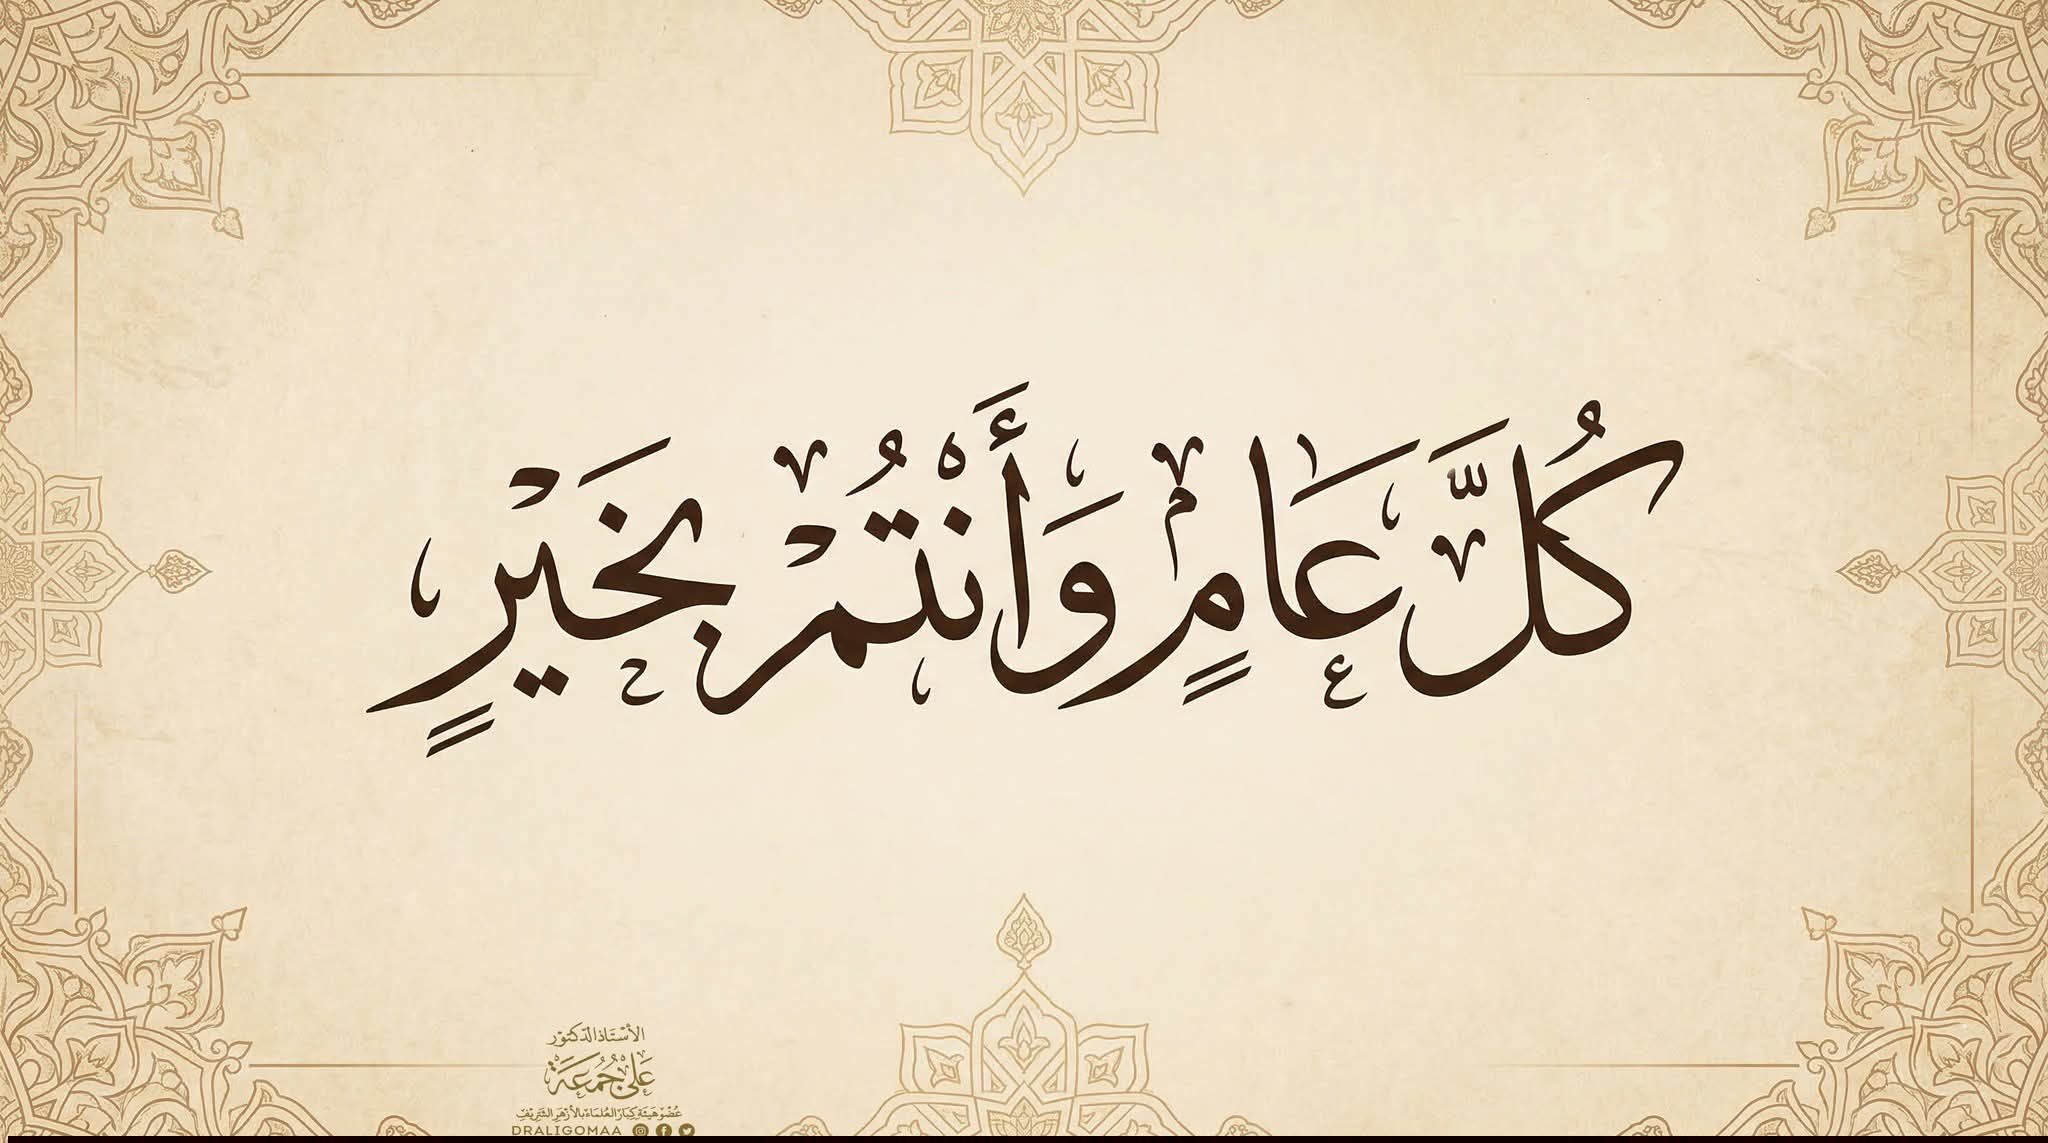 كُلَّ عَامٍ وَأَنْتُمْ بِخَيْرٍ
الأستاذ الدكتور
علي جمعة
عضو هيئة كبار العلماء بالأزهر الشريف
DRALIGOMAA